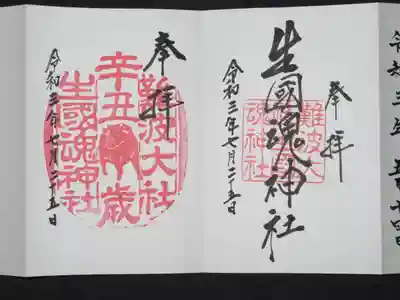 奉拝
難波大
社生國
魂神社
生國魂神社
令和三年七月二十五日
奉拝
難波大社
辛丑歳
生國魂神社
令和三年七月二十五日